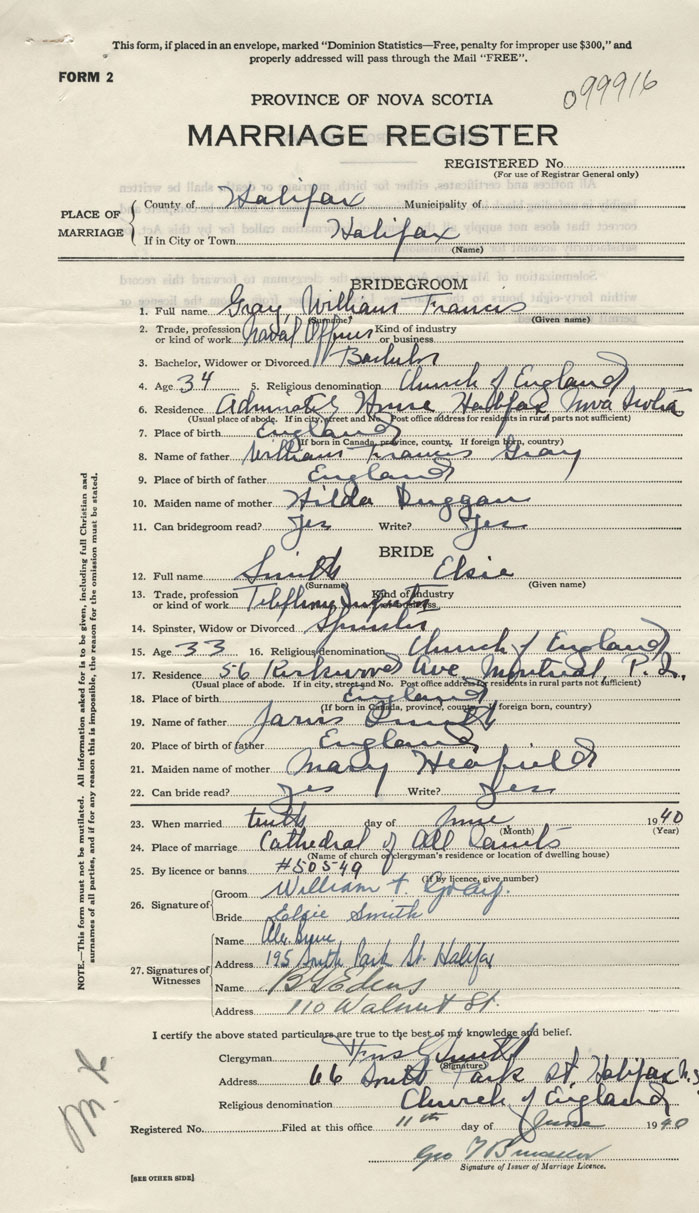 This form, if placed in an envelope, marked "Dominion Statistics—Free, penalty for improper use $300," and
properly addressed will pass through the Mail "FREE".
FORM 2
099916
PROVINCE OF NOVA SCOTIA
MARRIAGE REGISTER
REGISTERED No.
(For use of Registrar General only)
PLACE OF MARRIAGE
County of Halifax Municipality of
If in City or Town Halifax
(Name)
BRIDEGROOM
1. Full name Gray, William Francis
(Surname) (Given name)
2. Trade, profession or kind of work Naval Officer Kind of industry or business
3. Bachelor, Widower or Divorced Bachelor
4. Age 34 5. Religious denomination Church of England
6. Residence Admiralty House Halifax Nova Scotia
(Usual place of abode. If in city, street and No. Post office address for residents in rural parts not sufficient)
7. Place of birth England
(If born in Canada, province, county. If foreign born, country)
8. Name of father William Francis Gray
9. Place of birth of father England
10. Maiden name of mother Hilda Duggan
11. Can bridegroom read? Yes Write? Yes
BRIDE
12. Full name Smith Elsie
(Surname) (Given name)
13. Trade, profession or kind of work Telephone Kind of industry or business
14. Spinster, Widow or Divorced Spinster
15. Age 33 16. Religious denomination Church of England
17. Residence 56 Kirkwood Ave, Montreal, P.Q.
(Usual place of abode. If in city, street and No. Post office address for residents in rural parts not sufficient)
18. Place of birth England
(If born in Canada, province, county. If foreign born, country)
19. Name of father Smith
20. Place of birth of father England
21. Maiden name of mother Mary Heafield
22. Can bride read? Yes Write? Yes
23. When married tenth day of June 1940
(Month) (Year)
24. Place of marriage Cathedral of All Saints
(Name of church or clergyman's residence or location of dwelling house)
25. By licence or banns #50549
(If by licence, give number)
26. Signature of
Groom William F. Gray.
Bride Elsie Smith
27. Signatures of Witnesses
Name
Address 195 South Park St. Halifax
Name
Address 110 Walnut St.
I certify the above stated particulars are true to the best of my knowledge and belief.
Clergyman
(Signature)
Address 66 South Park St, Halifax N.S
Religious denomination Church of England
Registered No. Filed at this office 11th day of June 1940
Geo
Signature of Issuer of Marriage Licence.
[SEE OTHER SIDE]
NOTE.—This form must not be mutilated. All information asked for is to be given, including full Christian and
surnames of all parties, and if for any reason this is impossible, the reason for the omission must be stated.